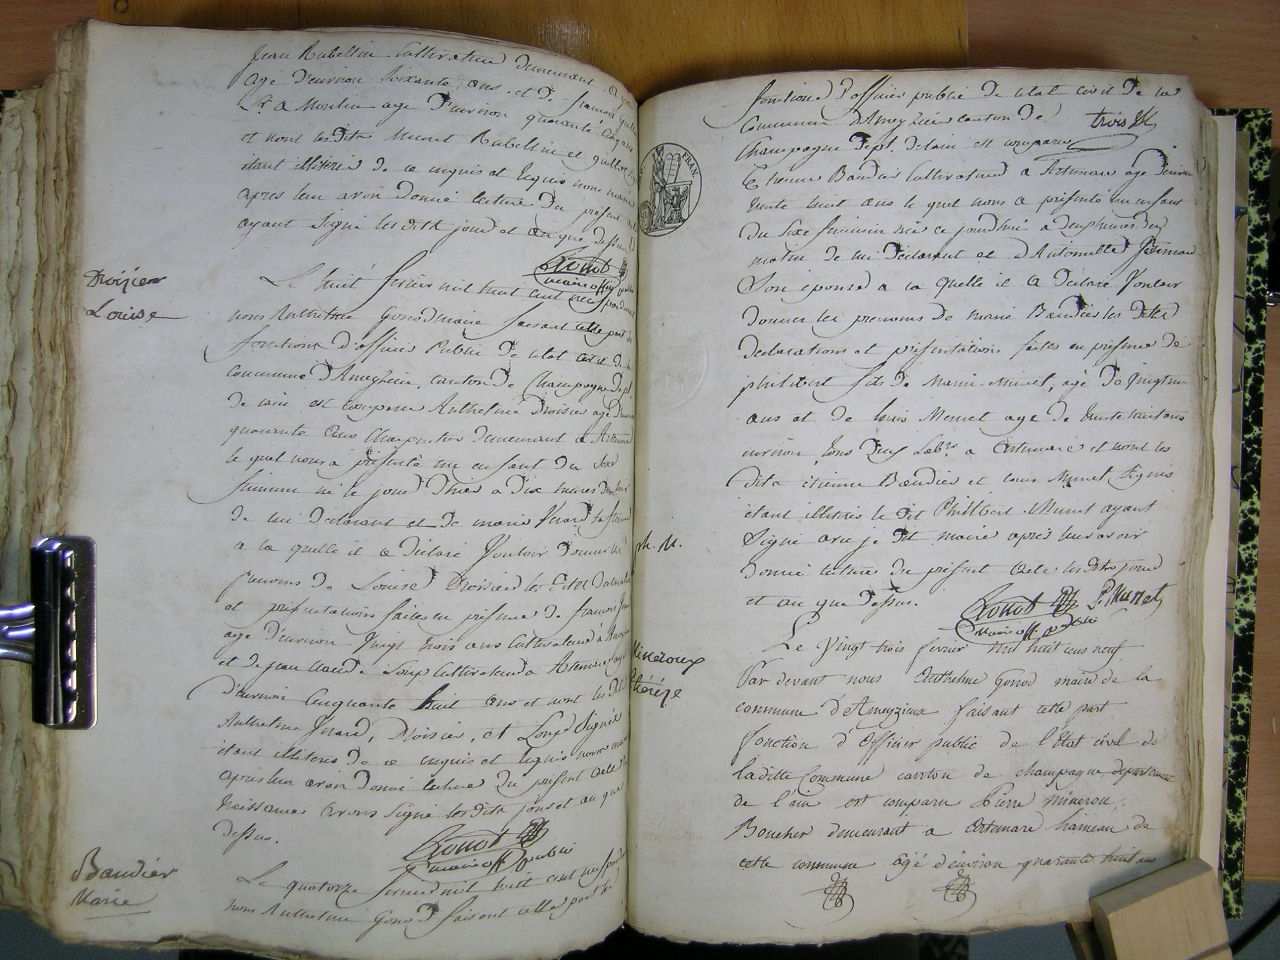 Jean Rubellin Cultivateur demeurant a
agé d'environ Soixante ans et de françois
a Moulin agé d'environ quarante cinq ans
et dont lesdits Munet Rubellin et
étant illitérés de ce enquis et requis nous maire
apres leur avoir donné lecture du présent acte
ayant Signé lesdits jour et an que dessus
Gonod
maire off. public
Droisier
Louise
Le huit fevrier mil huit cent neuf par devant
nous Anthelme Gonod maire faisant cette part les
fonctions d'officier Public de l'etat civil de la
Commune d'Ameyzieu, canton de Champagne dept
de l'ain est comparu Anthelme Droisier agé d'environ
quarante ans Charpentier demeurant a Artemare
le quel nous a présenté un enfant du Sexe
feminin né le jour d'hier a dix heures du
de lui déclarant et de marie Jinard Sa femme
a la quelle il a déclaré Vouloir donner les
prenoms de Louise Droisier les dites déclarations
et présentations faites en présence de françois
agé d'environ Vingt trois ans Cultivateur à
et de jean claude Loup Cultivateur a Artemare agé
d'environ Cinquante huit ans et dont lesdits
Anthelme Jinard, Droisier, et Loup Signés
étant illiteres de ce enquis et requis nous maire
après leur avoir donné lecture du présent acte de
naissance avons Signé lesdits jour et an que
dessus.
Gonod
maire off. public
Baudier
Marie
Le quatorze fevrier mil huit cent neuf par devant
nous Anthelme Gonod faisant cette part les
fonctions d'officier public de l'etat civil de la
trois
Commune d'Ameyzieu canton de
Champagne dept. de l'ain est comparu
FRAN
Etienne Baudier Cultivateur a Artemare agé d'environ
trente huit ans le quel nous a présenté un enfant
du Sexe feminin née ce jourdhui a deux heures du
matin de lui déclarant et d'Antoinette
Son épouse a la quelle il a déclaré Vouloir
donner les prenoms de marie Baudier les dites
déclarations et présentations faites en présence de
philibert fils de Marin Munet, agé de Vingt
ans et de louis Munet agé de trente huit ans
environ, tous deux Labrs. a Artemare et dont les
dits étienne Baudier et louis Munet Signés
étant illitérés le dit Philibert Munet ayant
Signé avec je dit maire après leur avoir
Ph. M.
donné lecture du présent acte lesdits jour
et an que dessus.
Gonod P. Munet
maire off. public
Mineroux
thérèze
Le Vingt trois fevrier mil huit cens neuf
Par devant nous Anthelme Gonod maire de la
commune d'Ameyzieux faisant cette part
fonction d'officier public de l'Etat civil de
laditte Commune canton de champagne departement
de l'ain est comparu Pierre minerou,
Boucher demeurant a Artemare hameau de
cette commune âgé d'environ quarante huit ans